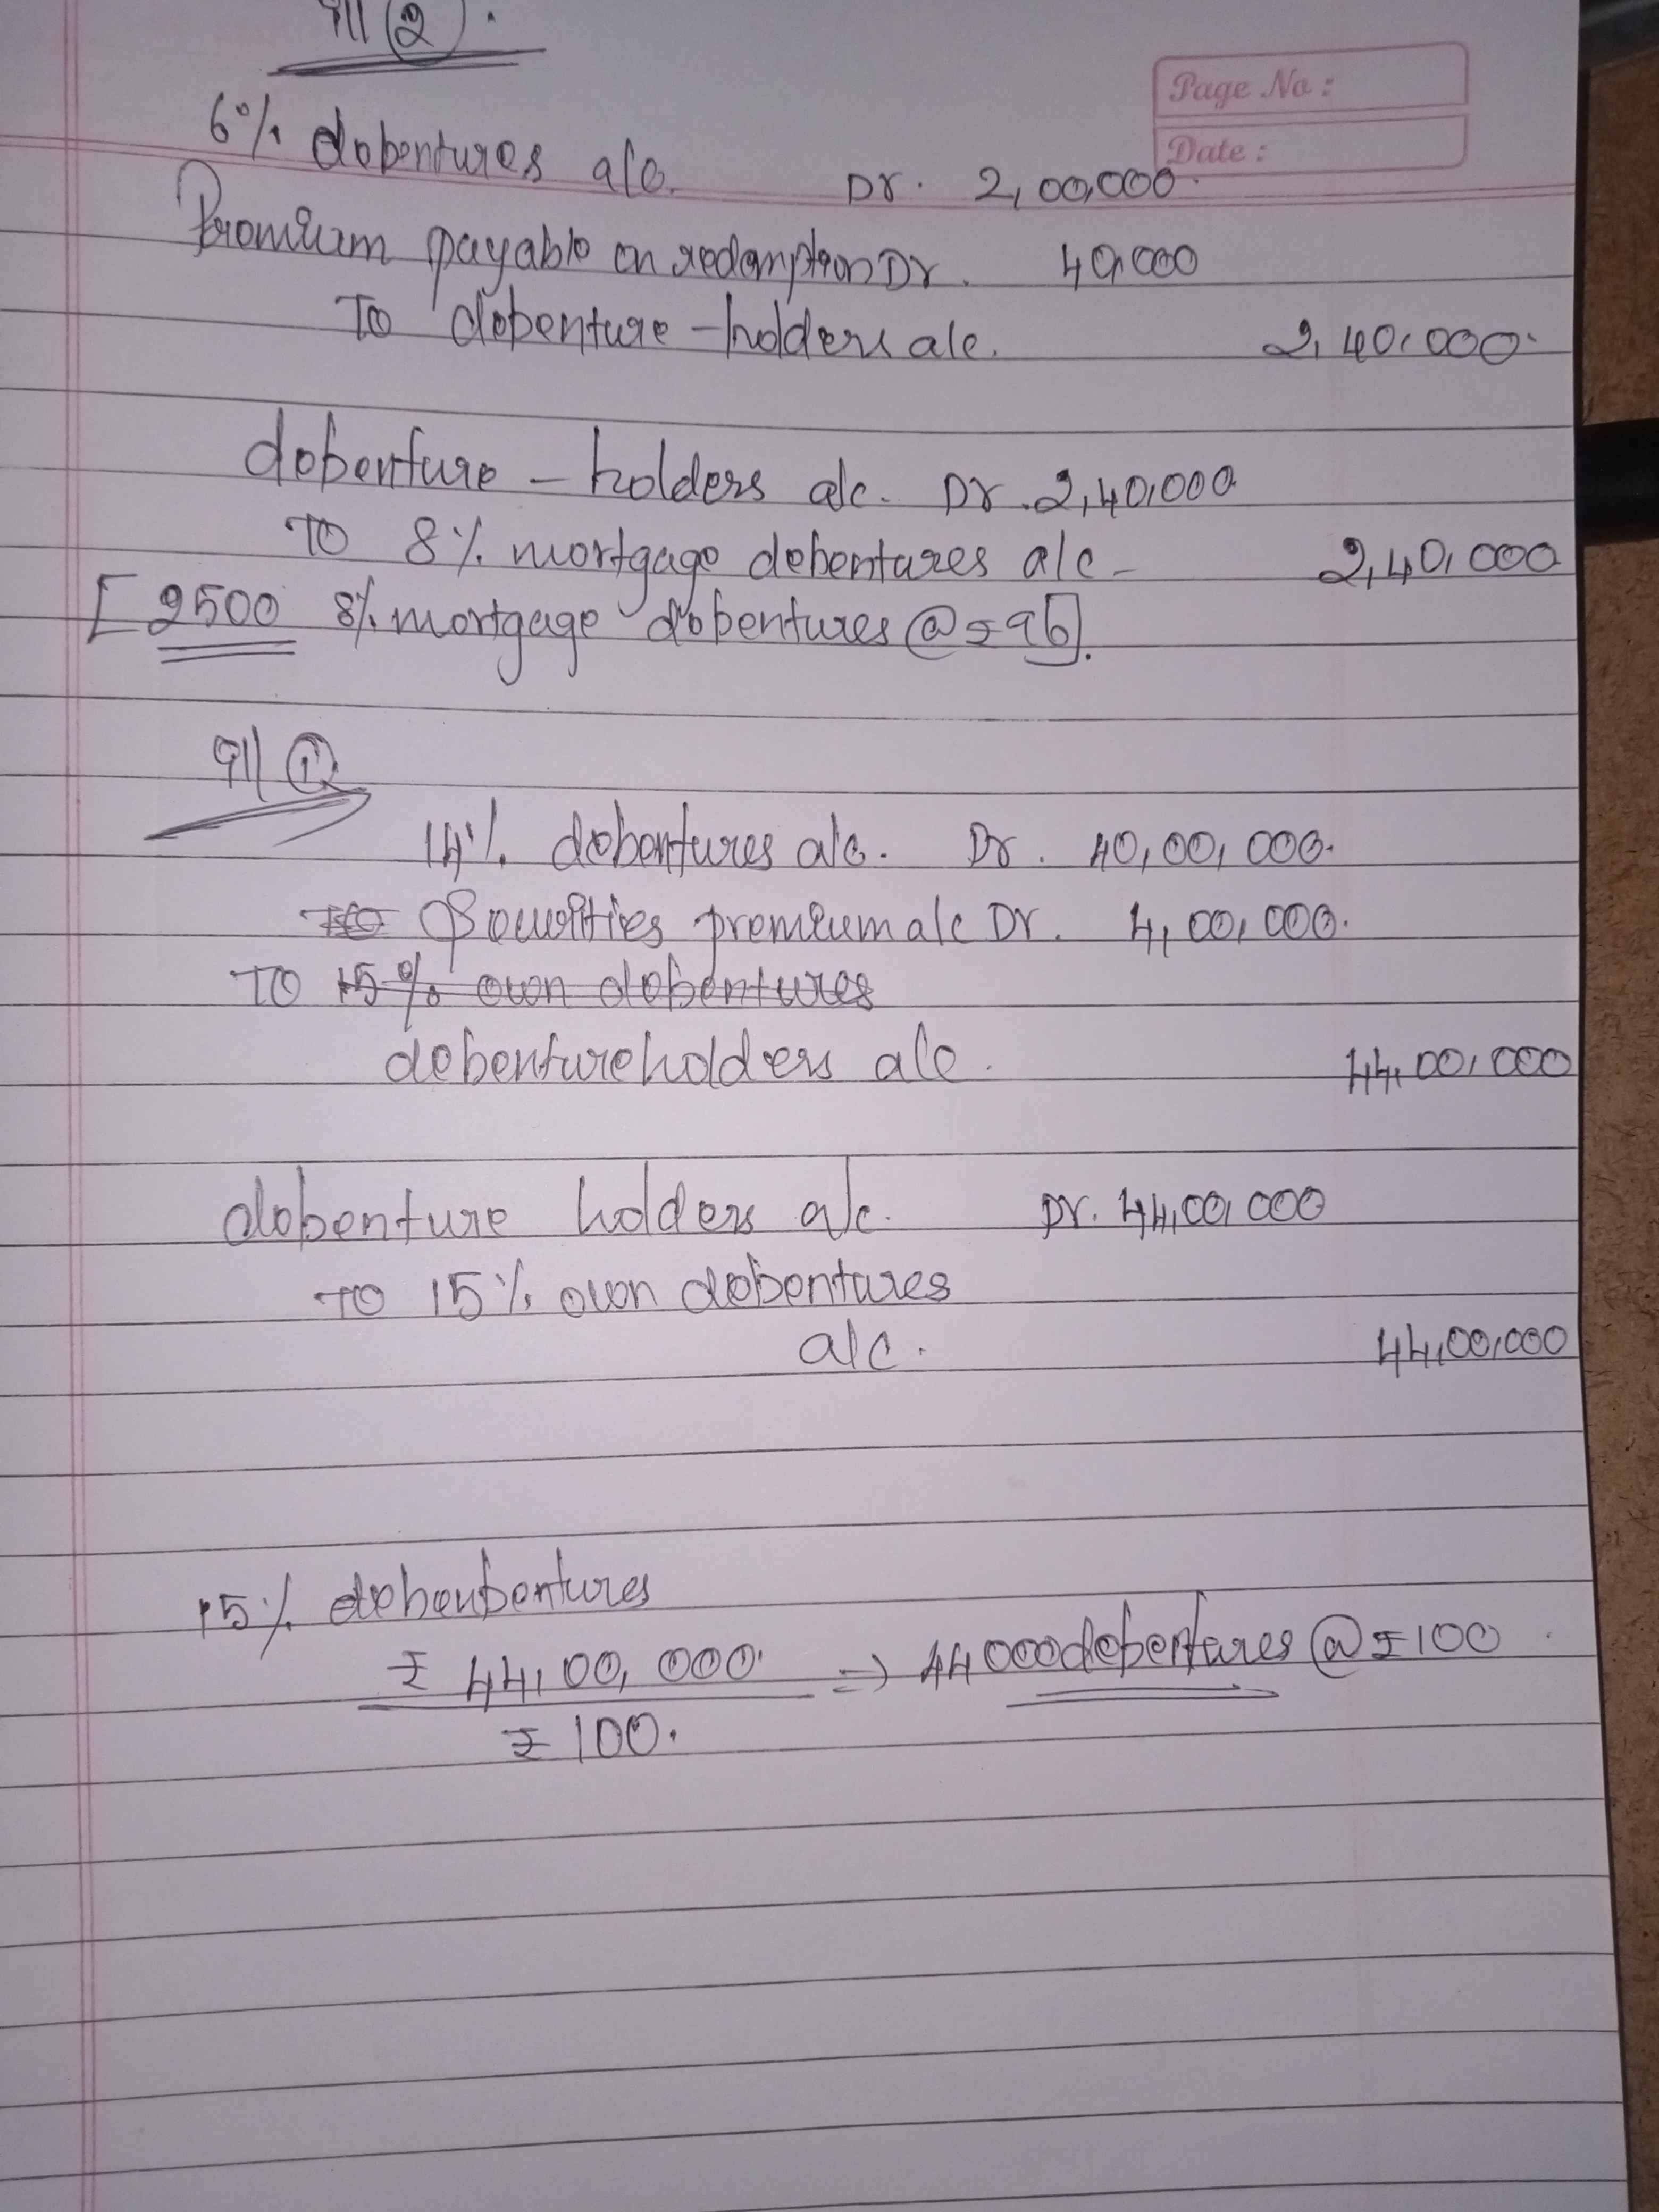 ill ②.
Page No :
Date :
6% debentures a/c. Dr. 2,00,000
Premium payable on redemption Dr. 40,000
To debenture - holders a/c. 2,40,000.
debenture - holders a/c. Dr. 2,40,000
To 8% mortgage debentures a/c - 2,40,000
[2500 8% mortgage debentures @ ₹96].
ill ①
14% debentures a/c. Dr. 40,00,000.
To Securities premium a/c Dr. 4,00,000.
To 15% own debentures
debentureholders a/c. 44,00,000
debenture holders a/c. Dr. 44,00,000
To 15% own debentures
a/c. 44,00,000
15% debenbentures
₹ 44,00,000. => 44000 debentures @ ₹100
₹ 100.